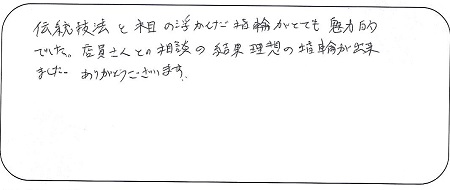 伝統技法と木目の浮かんだ指輪がとても魅力的
でした。店員さんとの相談の結果理想の指輪が出来
ました。ありがとうございます。